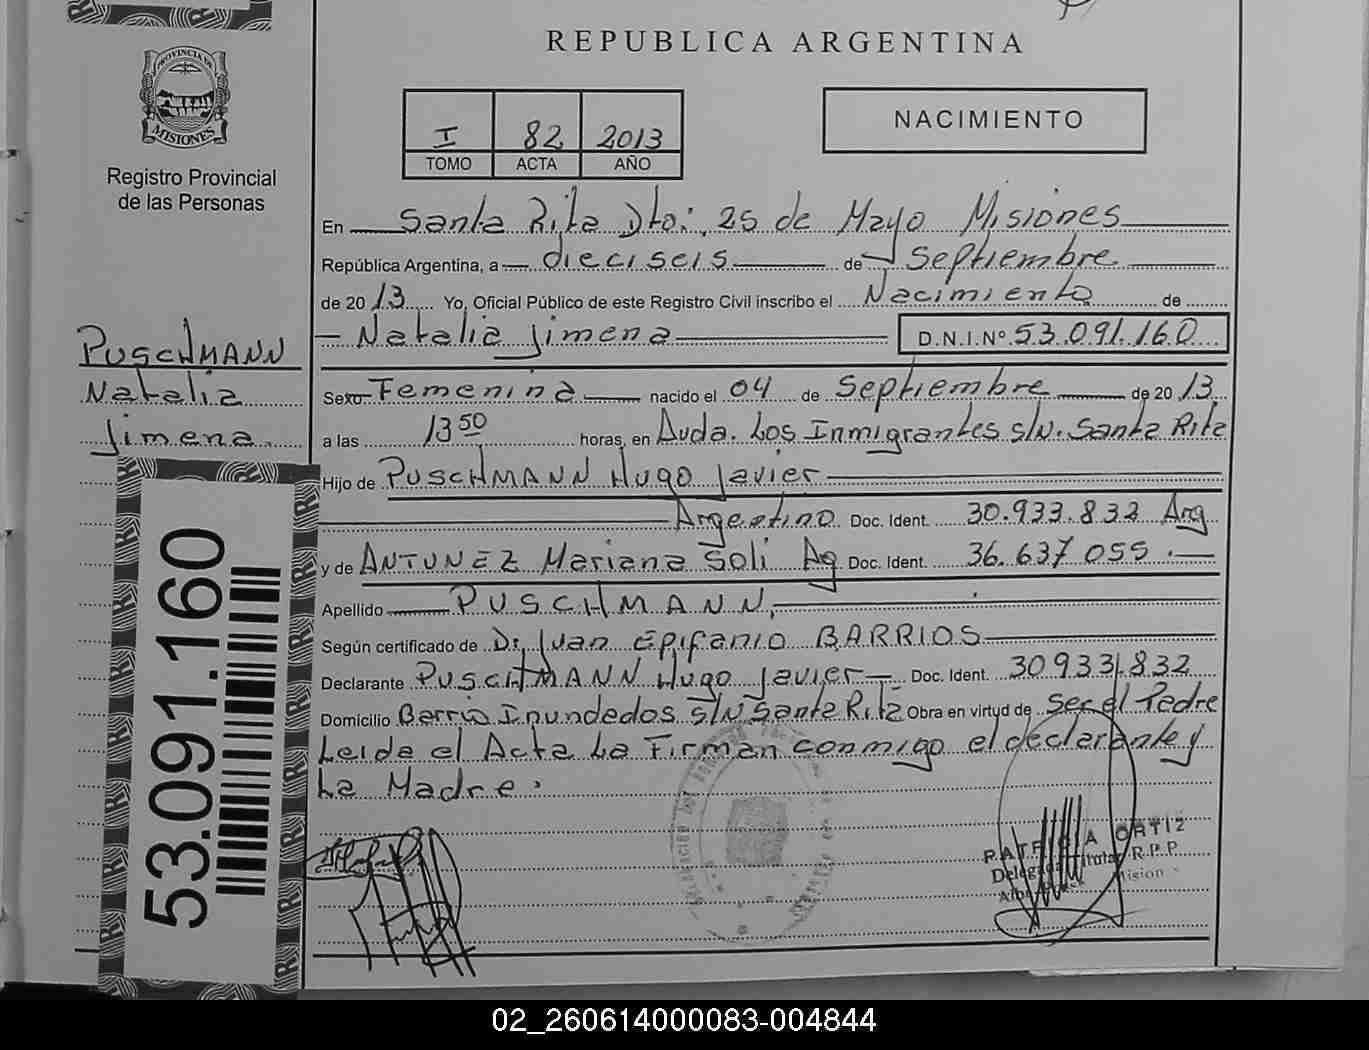 REPUBLICA ARGENTINA
PROVINCIA DE
MISIONES
Registro Provincial
de las Personas
I 82 2013
TOMO ACTA AÑO
NACIMIENTO
En Santa Rita Dto:. 25 de Mayo Misiones
República Argentina, a dieciseis de Septiembre
de 2013 Yo, Oficial Público de este Registro Civil inscribo el Nacimiento de
Natalia Jimena D.N.I.Nº 53.091.160
PUSCHMANN
Natalia
Jimena.
Sexo Femenina nacido el 04 de Septiembre de 2013
a las 13 50 horas, en Avda. Los Inmigrantes s/N. Santa Rita
Hijo de PUSCHMANN Hugo Javier
Argentino Doc. Ident. 30.933.832 Arg
y de ANTUNEZ Mariana Soli Ag Doc. Ident. 36.637 055.
Apellido PUSCHMANN,
Según certificado de Dr. Juan Epifanio BARRIOS
Declarante PUSCHMANN Hugo Javier Doc. Ident. 30 933.832
Domicilio Barrio Inundados s/N Santa Rita Obra en virtud de Ser el Padre
Leida el Acta La Firman conmigo el declarante y
La Madre.
53.091.160
ORTIZ
R.P.P
02_260614000083-004844